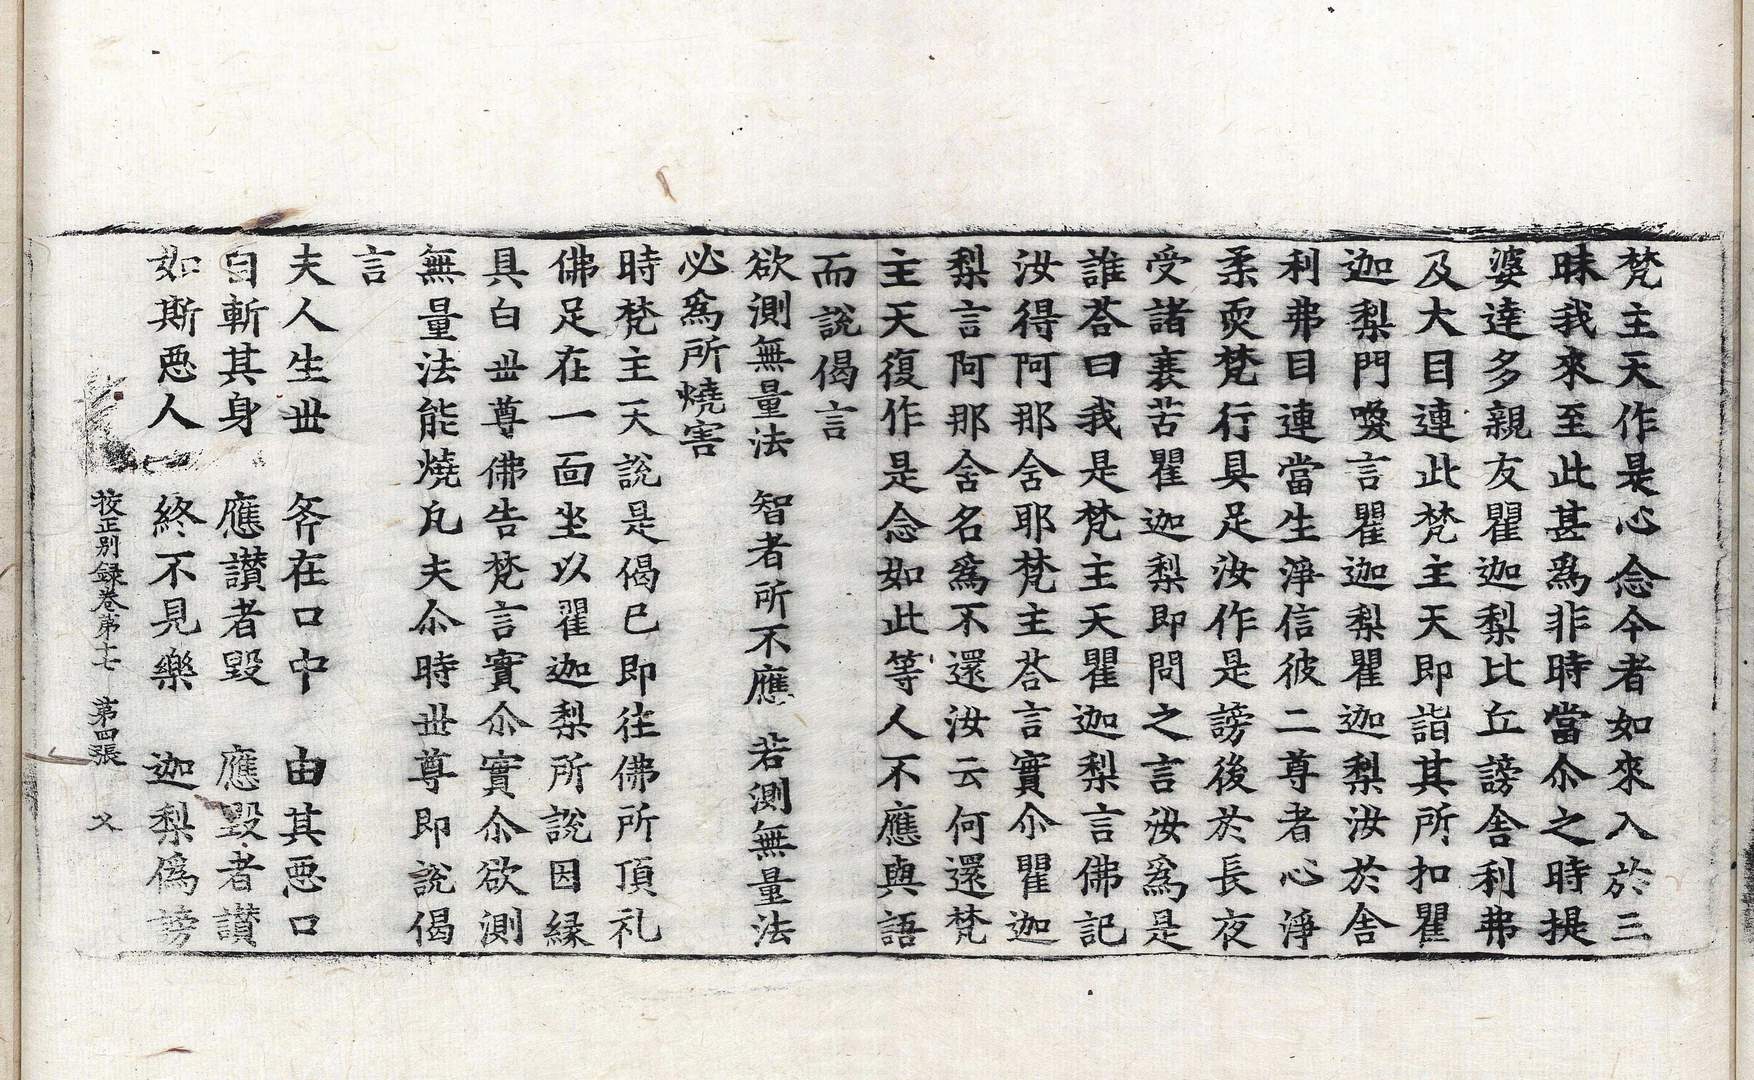 梵主天作是心念今者如來入於三
昧我來至此甚爲非時當尒之時提
婆達多親友瞿迦梨比丘謗舍利弗
及大目連此梵主天即詣其所扣瞿
迦梨門喚言瞿迦梨瞿迦梨汝於舍
利弗目連當生淨信彼二尊者心淨
柔耎梵行具足汝作是謗後於長夜
受諸衰苦瞿迦梨即問之言汝爲是
誰荅曰我是梵主天瞿迦梨言佛記
汝得阿那含耶梵主荅言實尒瞿迦
梨言阿那含名爲不還汝云何還梵
主天復作是念如此等人不應與語
而說偈言
欲測無量法　智者所不應　若測無量法
必爲所燒害
時梵主天說是偈已即往佛所頂礼
佛足在一面坐以瞿迦梨所說因縁
具白丗尊佛告梵言實尒實尒欲測
無量法能燒凡夫尒時丗尊即說偈
言
夫人生丗　斧在口中　由其惡口
自斬其身　應讃者毀　應毀者讃
如斯惡人　終不見樂　迦梨僞謗
挍正別録卷第十七　第四張　父